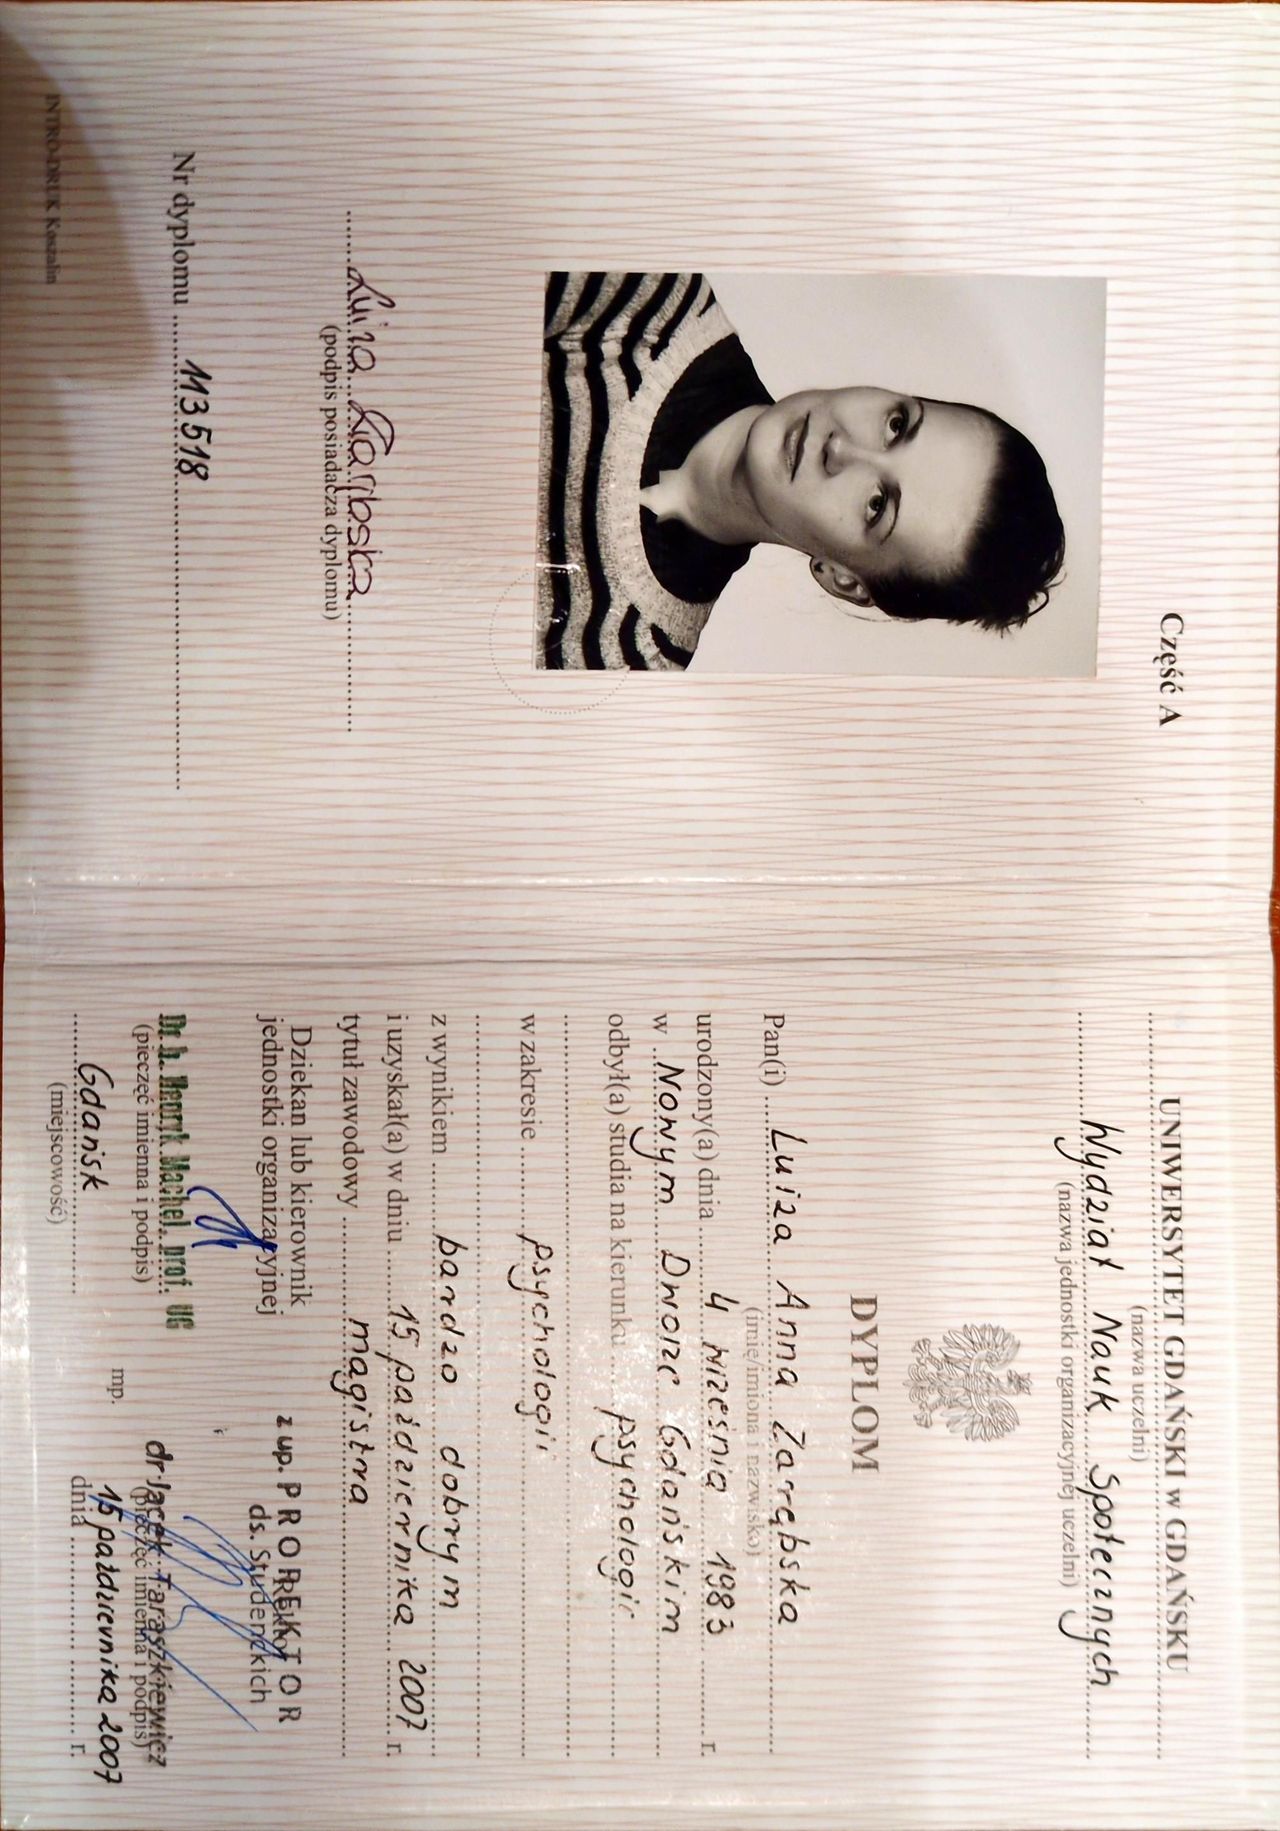 Część A
Luiza Zarębska
(podpis posiadacza dyplomu)
Nr dyplomu 113518
INTRO-DRUK Koszalin
UNIWERSYTET GDAŃSKI w GDAŃSKU
(nazwa uczelni)
Wydział Nauk Społecznych
(nazwa jednostki organizacyjnej uczelni)
DYPLOM
Pan(i) Luiza Anna Zarębska
(imię/imiona i nazwisko)
urodzony(a) dnia 4 września 1983 r.
w Nowym Dworze Gdańskim
odbył(a) studia na kierunku psychologii
w zakresie psychologii
z wynikiem bardzo dobrym
i uzyskał(a) w dniu 15 października 2007 r.
tytuł zawodowy magistra
Dziekan lub kierownik
jednostki organizacyjnej
Dr h. Henryk Machel, prof. UG
(pieczęć imienna i podpis)
z up. PROREKTOR
Rektor
ds. Studenckich
dr Jacek Taraszkiewicz
(pieczęć imienna i podpis)
mp.
Gdańsk
(miejscowość)
dnia 15 października 2007 r.